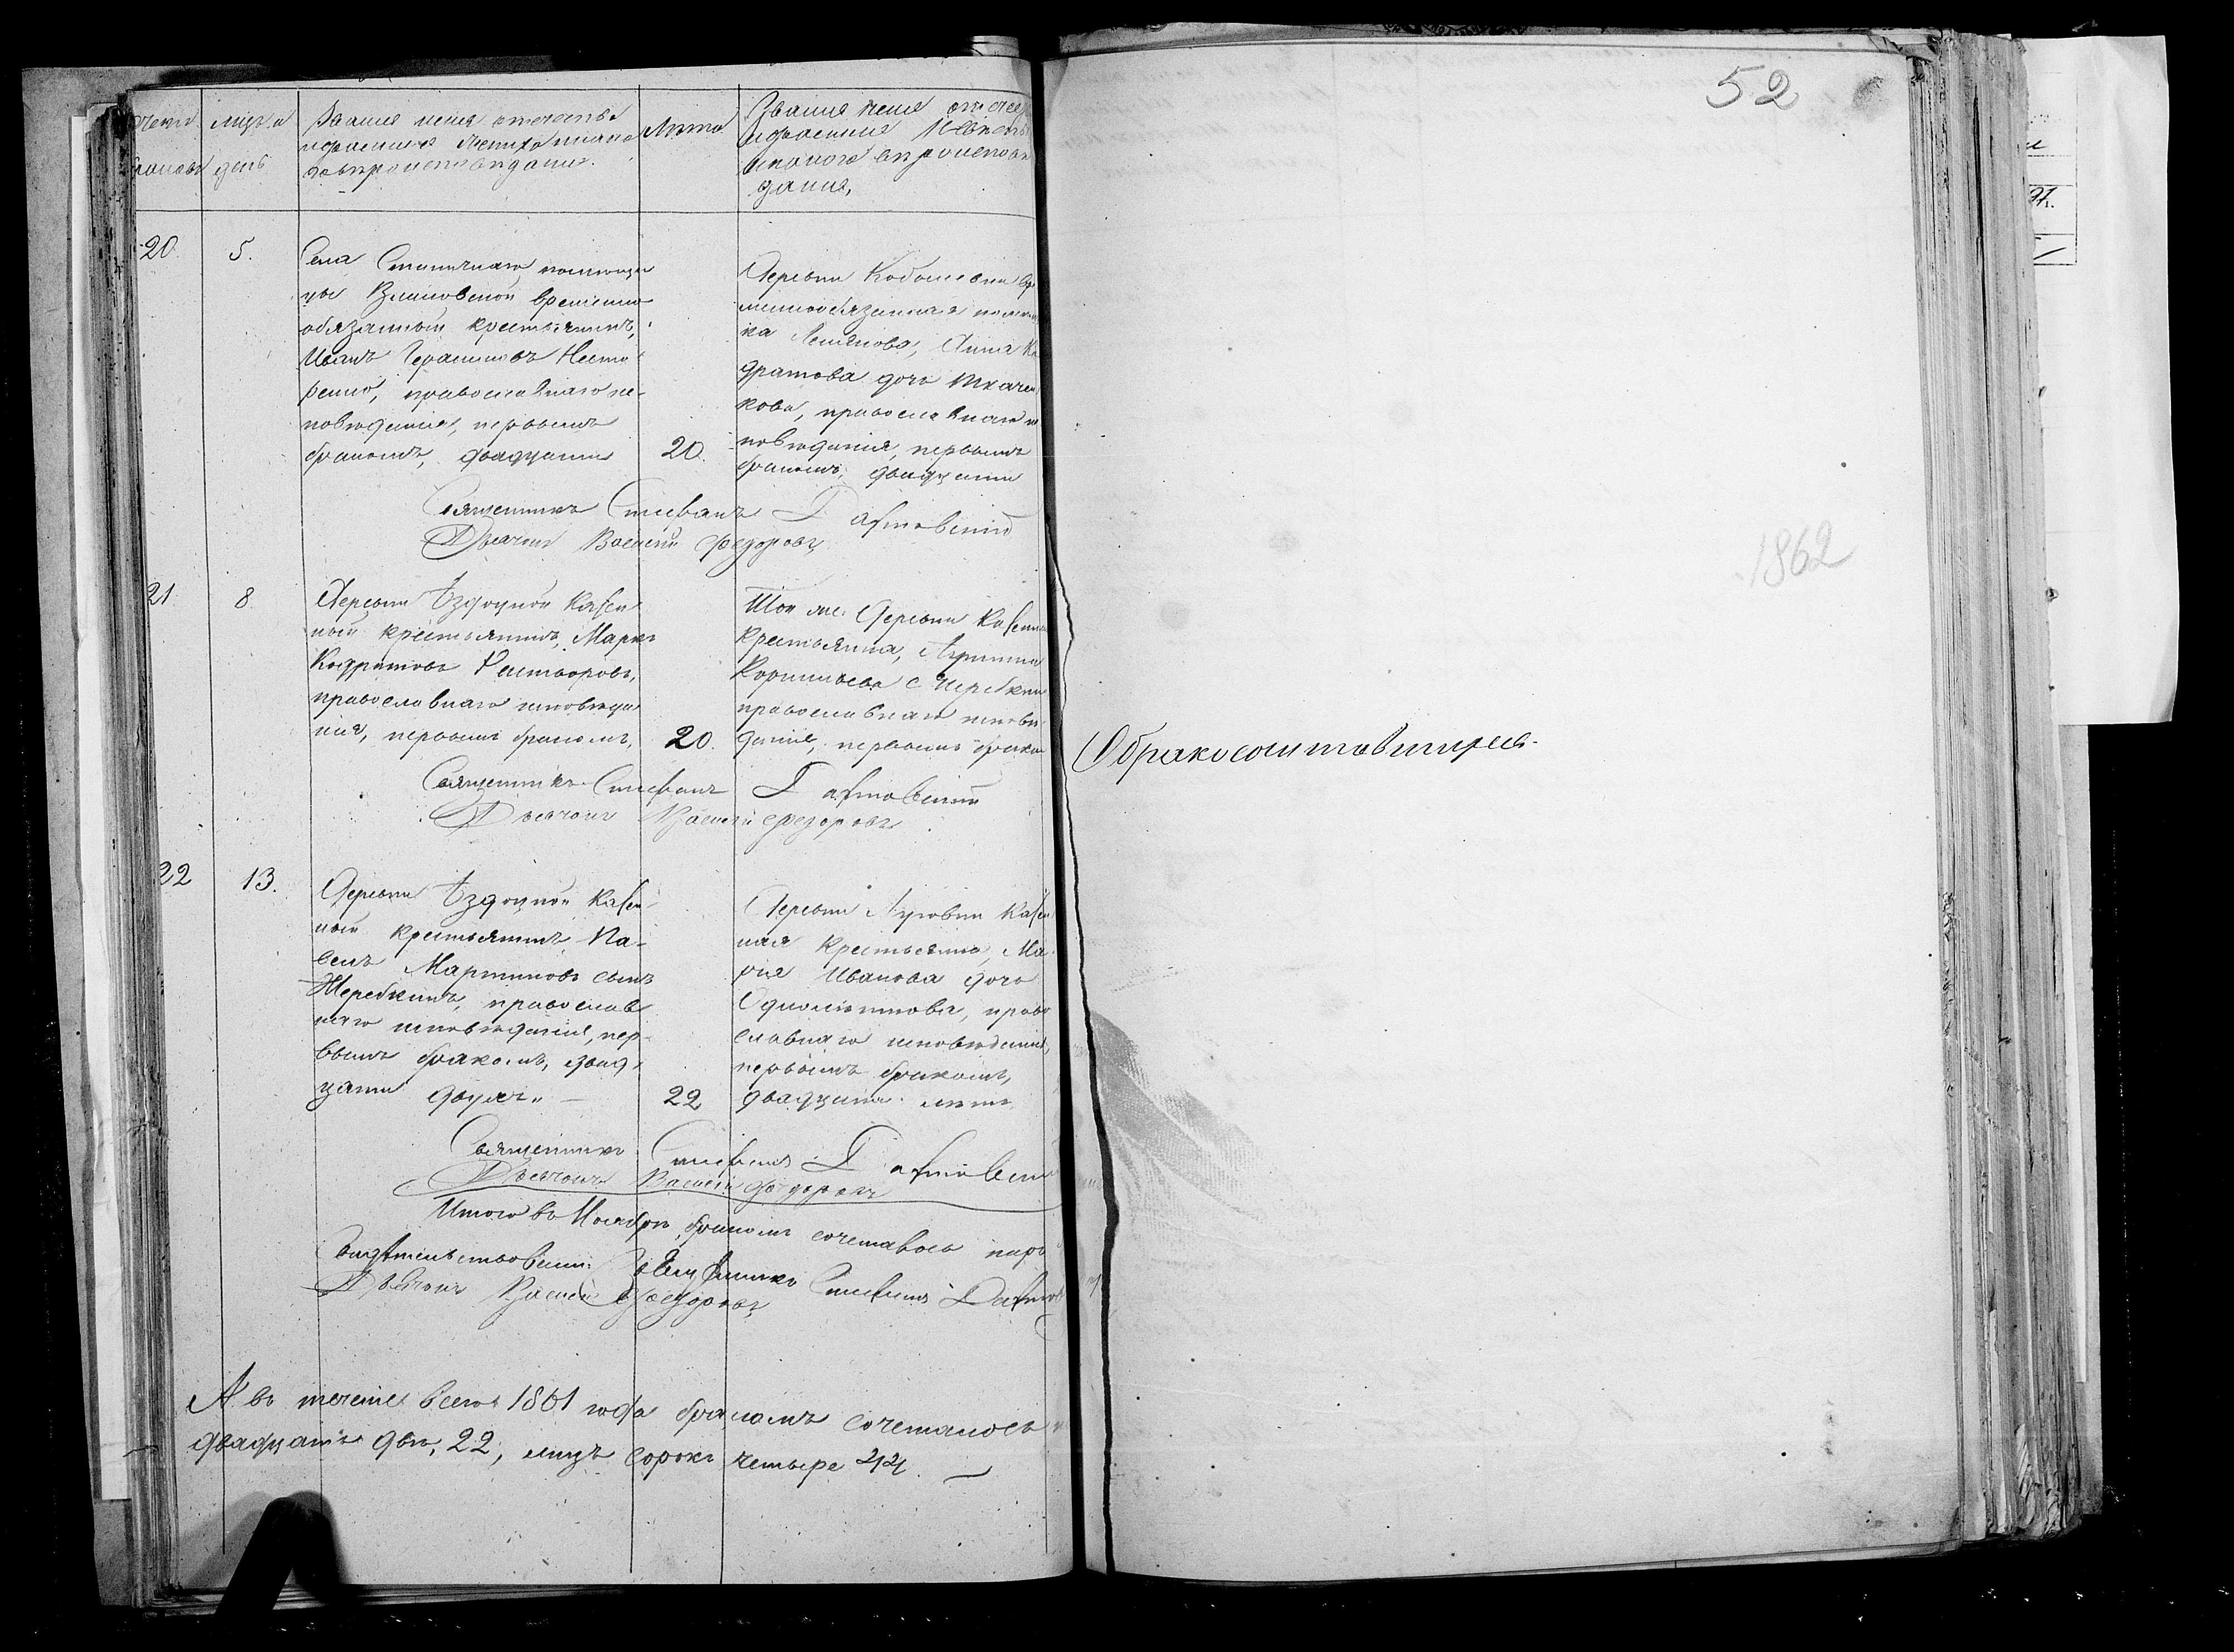 Счетъ браковъ
Мѣсяцъ и день
Званіе имя отчество
и фамилія Жениха и како-
го вѣроисповѣданія.
Лѣта
Званіе имя отчес
и фамилія Невѣсты
и какого вѣроисповѣ
данія,
20. 5.
Села помѣщи
цы временно
обязанный крестьянинъ,
Иванъ Герасимовъ Несте
ренко, православнаго ис-
повѣданія, первымъ
бракомъ, двадцати
20.
Деревни вре
меннообязанная помѣщи
ка Анна Ко
дратова дочь Ткачен
кова, православнаго ис
повѣданія, первымъ
бракомъ, двадцати
Священникъ Стефанъ
Дьячокъ Василій Федоровъ
21 8
Деревни Ѣздоцкой Казен
ный крестьянинъ, Маркъ
Кодратовъ
православнаго исповѣда
нія, первымъ бракомъ,
20.
Той же Деревни Казенная
Крестьянка,
православнаго исповѣ
данія, первымъ бракомъ
Священникъ Стефанъ
Дьячокъ Василій Федоровъ
22 13.
Деревни Ѣздоцкой Казен
ный крестьянинъ Па-
велъ Мартиновъ сынъ
Жеребкинъ, православ
наго исповѣданія, пер-
вымъ бракомъ, двад
цати двухъ
22
Деревни Луговки Казен
ная Крестьянка, Ма
рія Иванова дочь
право
славнаго исповѣданія,
первымъ бракомъ,
двадцати лѣтъ
Священникъ Стефанъ
Дьячокъ Василій Федоровъ
Итого въ Ноябрѣ бракомъ сочеталось паръ
Священникъ Стефанъ
Дьячокъ Василій Федоровъ
А въ теченіе всего 1861 года бракомъ сочеталось
двадцать двѣ, 22, лицъ сорокъ четыре 44.
52
1862
О бракосочетавшихся